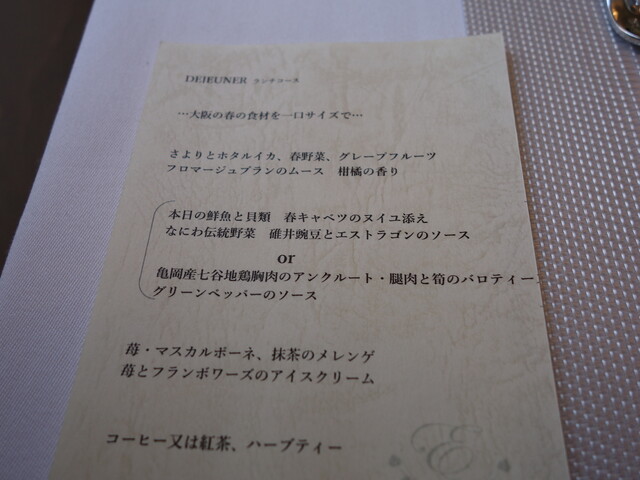 DEJEUNER ランチコース
…大阪の春の食材を一口サイズで…
さよりとホタルイカ、春野菜、グレープフルーツ
フロマージュブランのムース　柑橘の香り
本日の鮮魚と貝類　春キャベツのヌイユ添え
なにわ伝統野菜　碓井豌豆とエストラゴンのソース
or
亀岡産七谷地鶏胸肉のアンクルート・腿肉と筍のバロティーヌ
グリーンペッパーのソース
苺・マスカルポーネ、抹茶のメレンゲ
苺とフランボワーズのアイスクリーム
コーヒー又は紅茶、ハーブティー
E